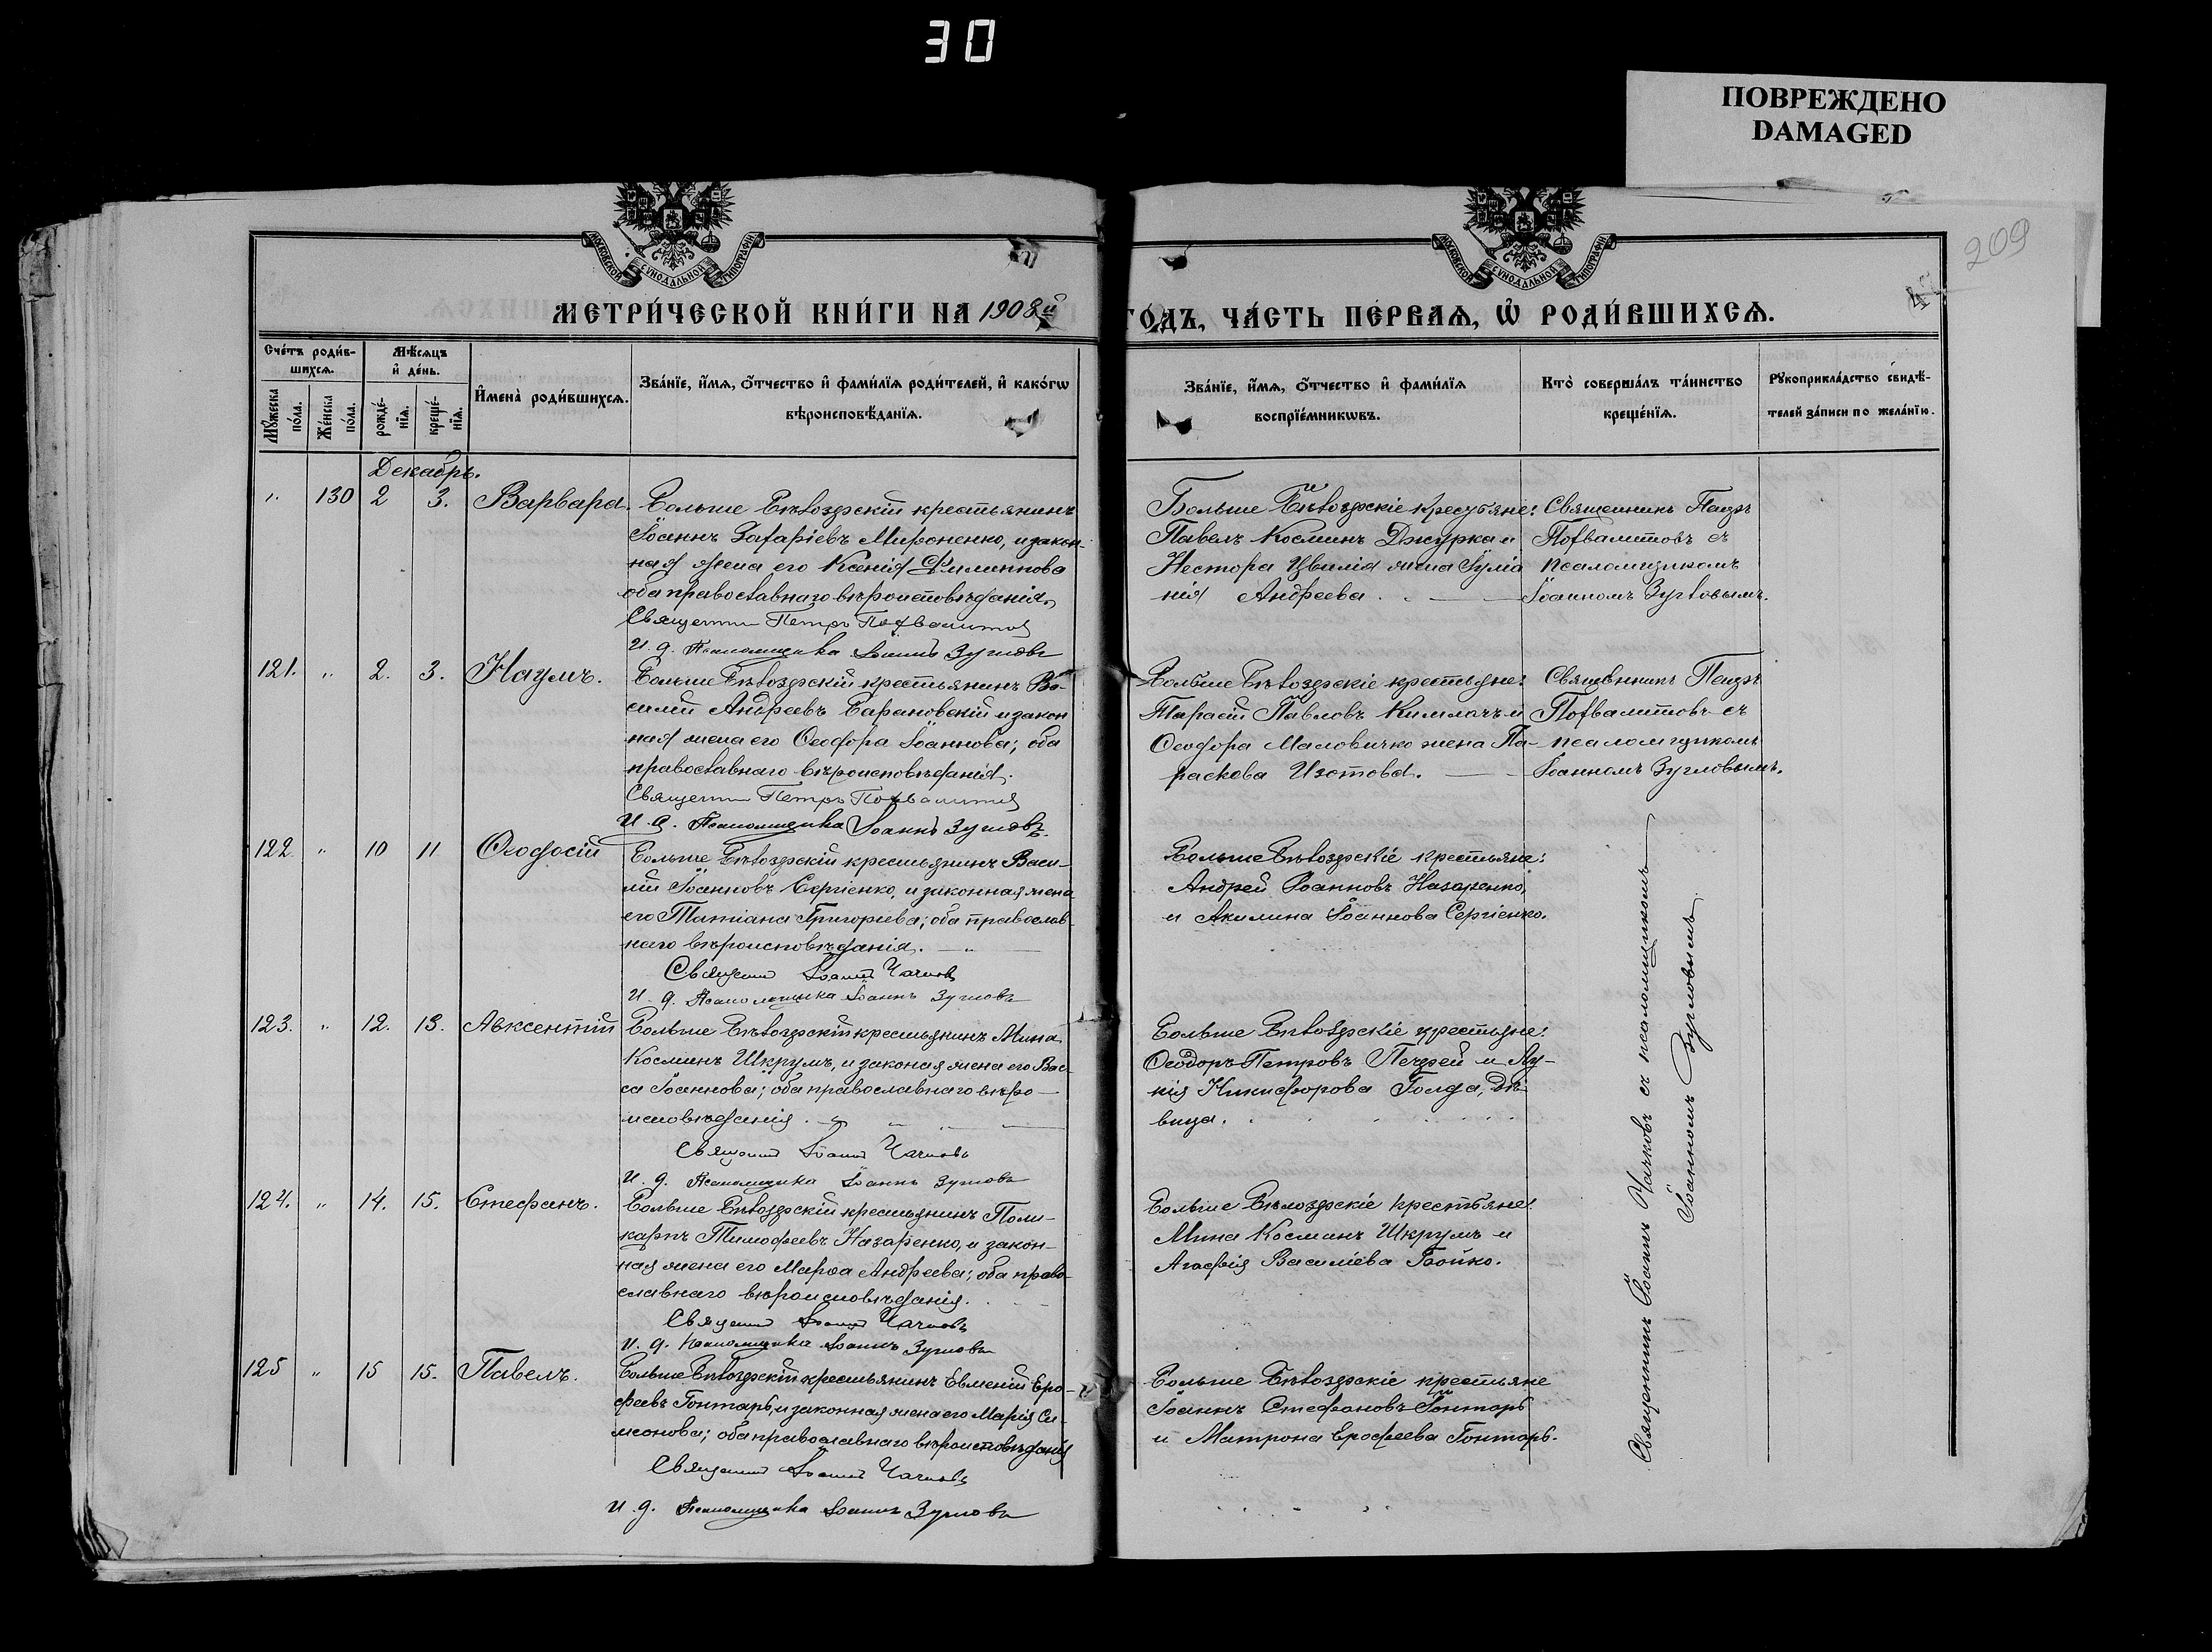 30
ПОВРЕЖДЕНО
DAMAGED
209
МОСКОВСКОЙ СѴНОДАЛЬНОЙ ТИПОГРАФІИ
МОСКОВСКОЙ СѴНОДАЛЬНОЙ ТИПОГРАФІИ
МЕТРИ́ЧЕСКОЙ КНИ́ГИ НА 1908й
ГО́ДЪ, ЧА́СТЬ ПЕ́РВАѦ, Ѡ҆ РОДИ́ВШИХСѦ.
Сче́тъ роди́в-
шихсѧ.
Мѣ́сѧцъ
и҆ де́нь.
И҆мена̀ роди́вшихсѧ.
Зва́нїе, и҆́мѧ, о҆́тчество и҆ фами́лїѧ роди́телей, и҆ како́гѡ
вѣроисповѣ́данїѧ.
Мꙋ́жеска
по́ла.
Же́нска
по́ла.
рожде́-
нїѧ.
креще́-
нїѧ.
Зва́нїе, и҆́мѧ, о҆́тчество и҆ фами́лїѧ
воспрїе́мникѡвъ.
Кто̀ соверша́лъ та́инство
креще́нїѧ.
Рꙋкоприкла́дство свидѣ́-
телей за́писи по жела́нїю.
Декабрь.
" 130 2 3. Варвара.
Больше Бѣлозерскій крестьянинъ
Іоаннъ Захаріевъ Мироненко, и закон-
ная жена его Ксенія Филиппова
оба православнаго вѣроисповѣданія.
Священни Петръ Похвалитовъ
И. д. Псаломщика Іоаннъ Зугловъ
Больше Бѣлозерскіе крестьяне:
Павелъ Косминъ Джурка и
Нестора Цвилія жена Іуліа
нія Андреева.
Священникъ Петръ
Похвалитовъ съ
псаломщикомъ
Іоанномъ Зугловымъ.
121. " 2. 3. Наумъ.
Больше Бѣлозерскій крестьянинъ Ва-
силій Андреевъ Барановскій и закон
ная жена его Ѳеодора Іоаннова; оба
православнаго вѣроисповѣданія.
Священни Петръ Похвалитовъ
И. д. Псаломщика Іоаннъ Зугловъ.
Больше Бѣлозерскіе крестьяне:
Тарасій Павловъ и
Ѳеодора Маловичко жена Па-
раскова Изотова.
Священникъ Петръ
Похвалитовъ съ
псаломщикомъ
Іоанномъ Зугловымъ.
122. " 10 11 Ѳеодосій
Больше Бѣлозерскій крестьянинъ Васи-
лій Іоанновъ Сергіенко, и законная жена
его Татіана Григорьева; оба православ-
наго вѣроисповѣданія.
Священни Іоаннъ Чачковъ
И. д. Псаломщика Іоаннъ Зугловъ
Больше Бѣлозерскіе крестьяне:
Андрей Іоанновъ Назаренко,
и Акилина Іоаннова Сергіенко.
123. " 12. 13. Авксентій
Больше Бѣлозерскій крестьянинъ Мина
Косминъ Шкрумъ, и законая жена его Вас-
са Іоаннова; оба православнаго вѣро-
исповѣданія.
Священни Іоаннъ Чачковъ
И. д. Псаломщика Іоаннъ Зугловъ
Больше Бѣлозерскіе крестьяне:
Ѳеодоръ Петровъ и Лу-
кія Никифорова Голда, дѣ-
вица.
124. " 14. 15. Стефанъ.
Больше Бѣлозерскій крестьянинъ Поли-
карпъ Тимофеевъ Назаренко, и закон-
ная жена его Марѳа Андреева; оба право-
славнаго вѣроисповѣданія.
Священни Іоаннъ Чачковъ
И. д. Псаломщика Іоаннъ Зугловъ
Больше Бѣлозерскіе крестьяне:
Мина Косминъ Шкрумъ и
Агафія Василіева Бойко.
125 " 15 15. Павелъ.
Больше Бѣлозерскій крестьянинъ Евменій Еро-
феевъ Гонтарь, и законная жена его Марія Си-
меонова; оба православнаго вѣроисповѣданія
Священни Іоаннъ Чачковъ
И. д. Псаломщика Іоаннъ Зугловъ
Больше Бѣлозерскіе крестьяне
Іоаннъ Стефановъ Гонтарь
и Матрона Ерофеева Гонтарь.
Священникъ Іоаннъ Чачковъ съ псаломщикомъ
Іоанномъ Зугловымъ